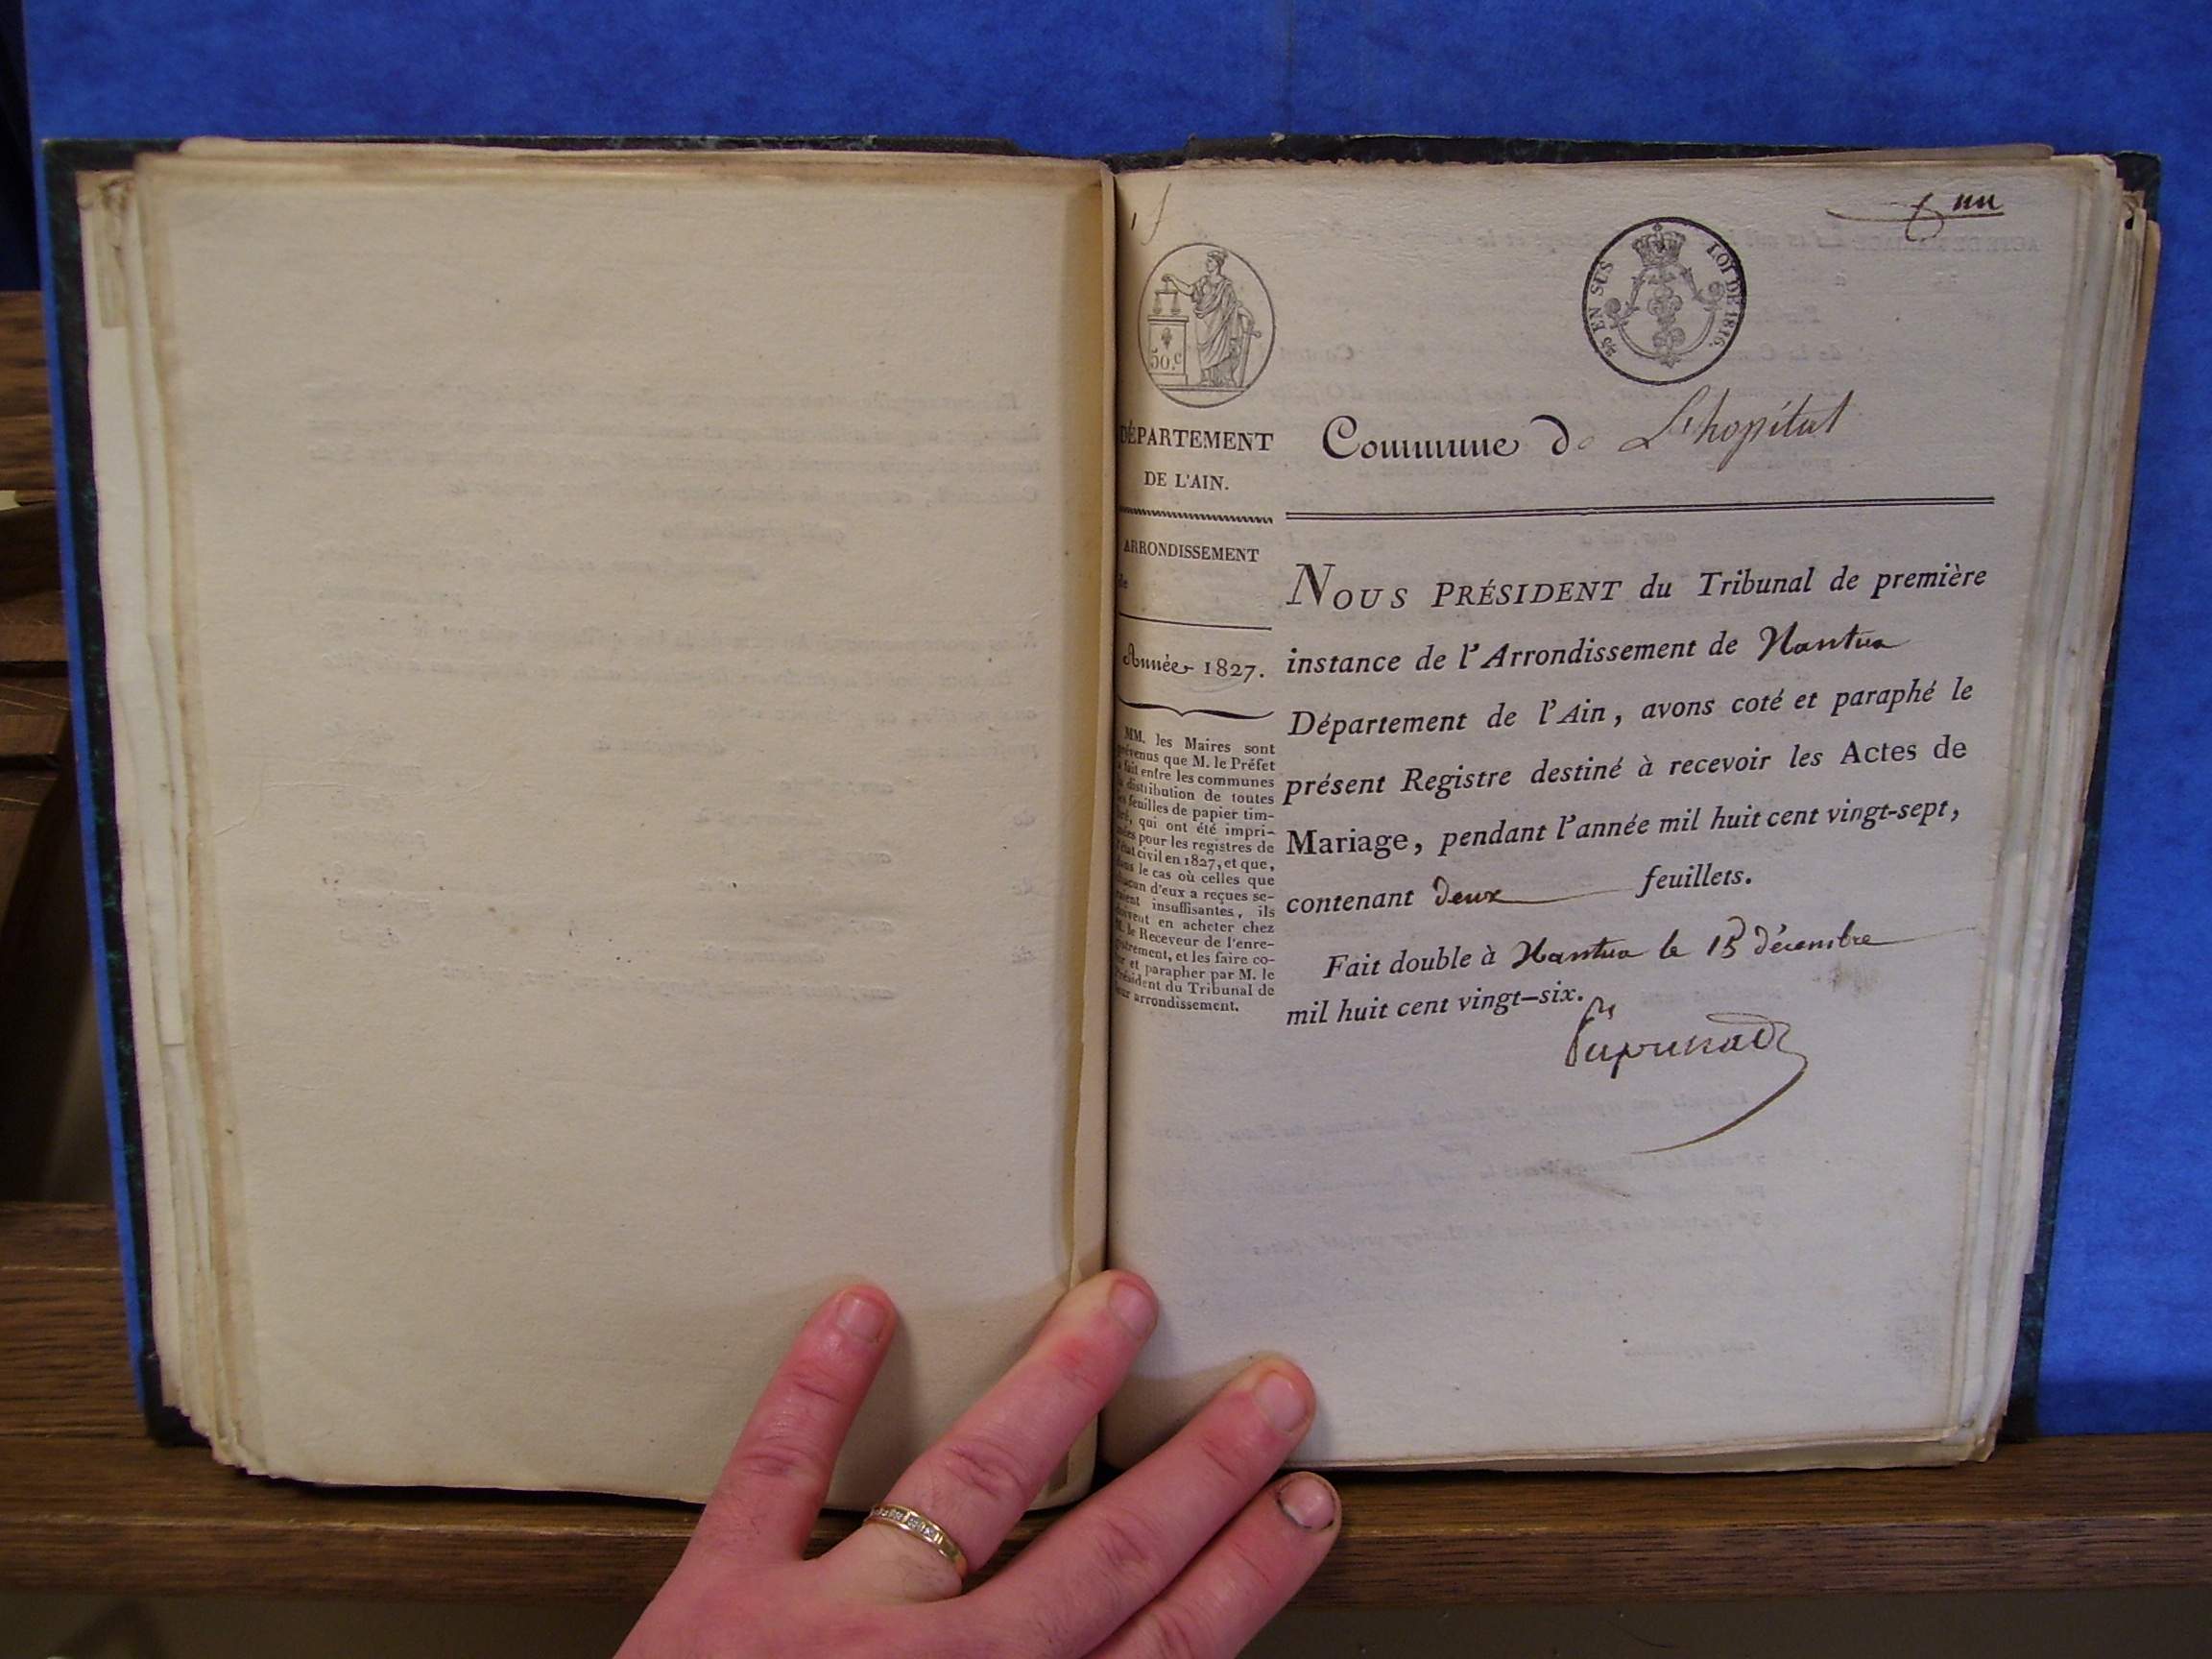 un
50.c
25 EN SUS LOI DE 1816.
DÉPARTEMENT
DE L'AIN.
ARRONDISSEMENT
de
Année 1827.
MM. les Maires sont
prévenus que M. le Préfet
a fait entre les communes
la distribution de toutes
les feuilles de papier tim-
bré, qui ont été impri-
mées pour les registres de
l'état civil en 1827, et que,
dans le cas où celles que
chacun d'eux a reçues se-
raient insuffisantes, ils
doivent en acheter chez
M. le Receveur de l'enre-
gistrement, et les faire co-
ter et parapher par M. le
Président du Tribunal de
leur arrondissement.
Commune de Lhopital
NOUS PRÉSIDENT du Tribunal de première
instance de l'Arrondissement de Nantua
Département de l'Ain, avons coté et paraphé le
présent Registre destiné à recevoir les Actes de
Mariage, pendant l'année mil huit cent vingt-sept,
contenant deux feuillets.
Fait double à Nantua le 15 décembre
mil huit cent vingt-six.